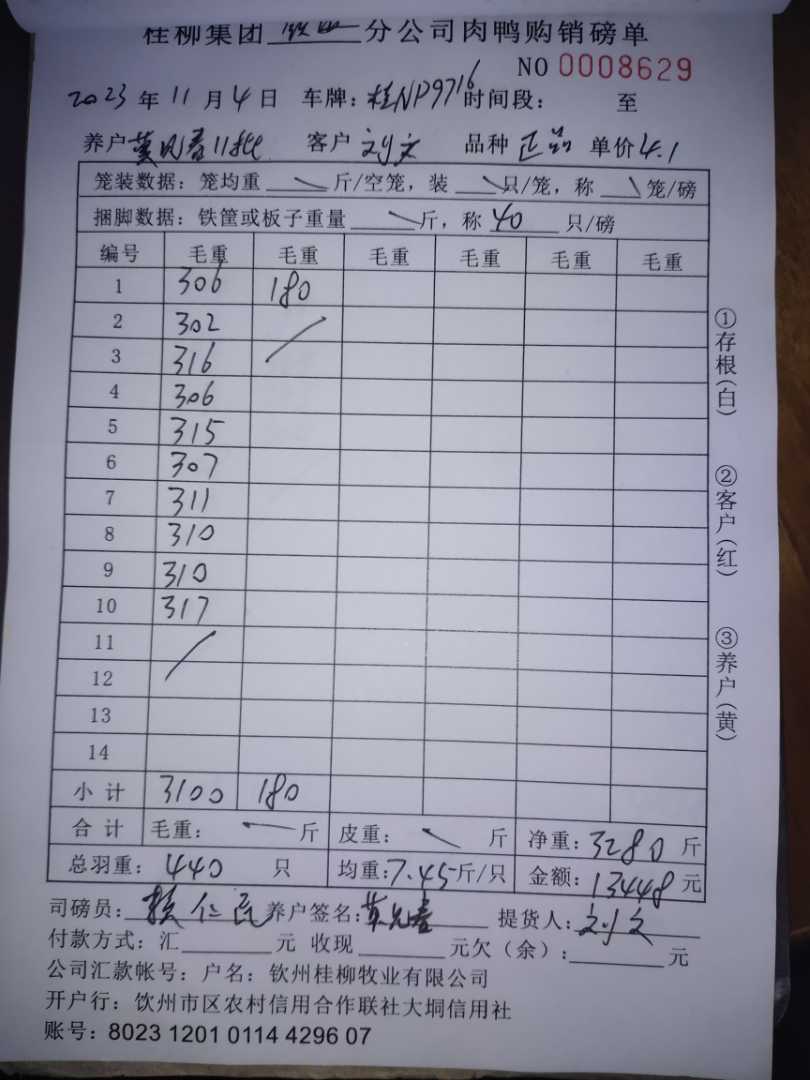 桂柳集团 分公司肉鸭购销磅单
NO 0008629
2023 年 11 月 4 日 车牌：桂NP9716 时间段： 至
养户 11批 客户 刘文 品种 正品 单价 4.1
笼装数据：笼均重 斤/空笼，装 只/笼，称 笼/磅
捆脚数据：铁筐或板子重量 斤，称 40 只/磅
编号 毛重 毛重 毛重 毛重 毛重 毛重
1 306 180
2 302
3 316
4 306
5 315
6 307
7 311
8 310
9 310
10 317
11
12
13
14
小计 3100 180
合计 毛重： 斤 皮重： 斤 净重：3280 斤
总羽重：440 只 均重：7.45 斤/只 金额：13448 元
司磅员： 养户签名： 提货人：刘文
付款方式：汇 元 收现 元欠（余）： 元
公司汇款帐号：户名：钦州桂柳牧业有限公司
开户行：饮州市区农村信用合作联社大垌信用社
账号：8023 1201 0114 4296 07
①存根（白）
②客户（红）
③养户（黄）